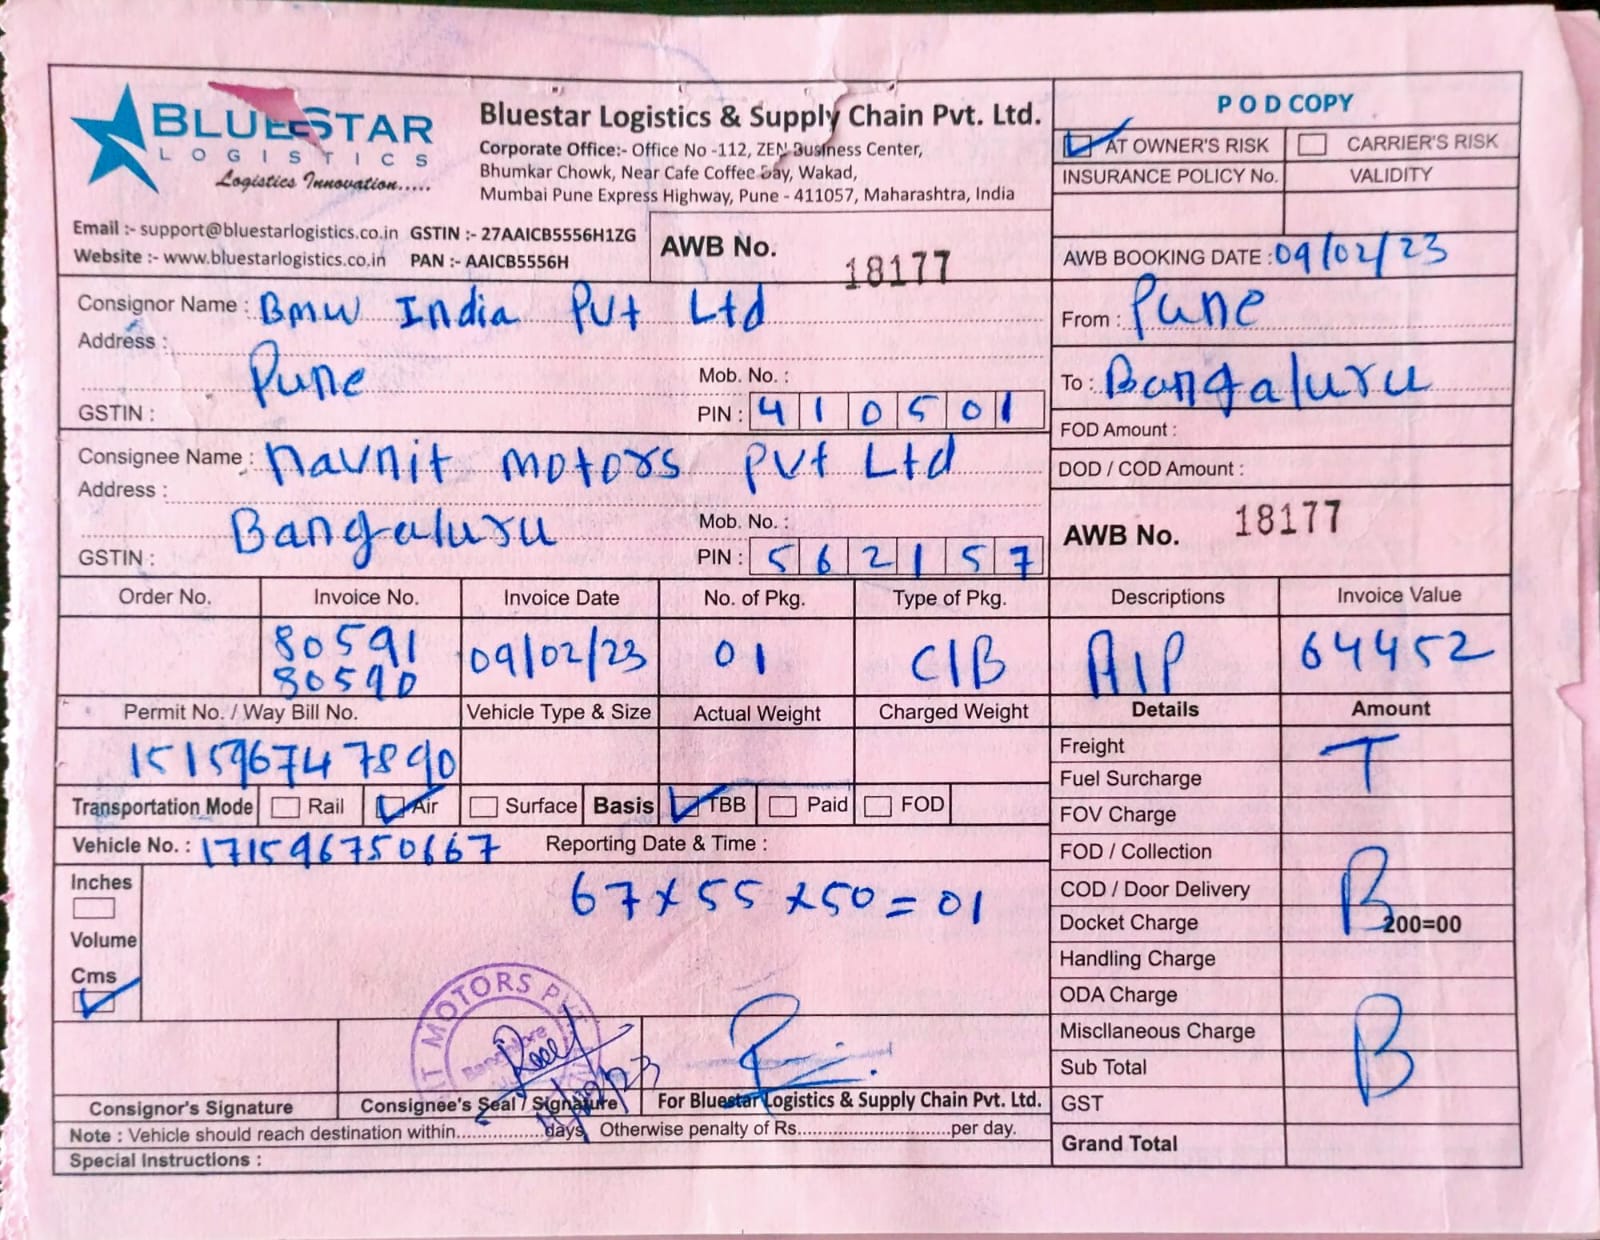 BLUESTAR
LOGISTICS
Logistics Innovation.....
Bluestar Logistics & Supply Chain Pvt. Ltd.
Corporate Office:- Office No -112, ZEN Business Center,
Bhumkar Chowk, Near Cafe Coffee Day, Wakad,
Mumbai Pune Express Highway, Pune - 411057, Maharashtra, India
Email :- support@bluestarlogistics.co.in GSTIN :- 27AAICB5556H1ZG
Website :- www.bluestarlogistics.co.in PAN :- AAICB5556H
AWB No. 18177
POD COPY
AT OWNER'S RISK CARRIER'S RISK
INSURANCE POLICY No. VALIDITY
AWB BOOKING DATE : 09/02/23
Consignor Name : Bmw India Pvt Ltd
Address :
Pune
Mob. No. :
GSTIN : PIN : 410501
From : Pune
To : Bangaluru
FOD Amount :
DOD / COD Amount :
Consignee Name : Navnit motors Pvt Ltd
Address :
Bangaluru
Mob. No. :
GSTIN : PIN : 562157
AWB No. 18177
Order No. Invoice No. Invoice Date No. of Pkg. Type of Pkg. Descriptions Invoice Value
80591 09/02/23 01 C/B A/P 64452
80590
Permit No. / Way Bill No. Vehicle Type & Size Actual Weight Charged Weight Details Amount
151596747890
Transportation Mode Rail Air Surface Basis TBB Paid FOD
Vehicle No. : 171596750667 Reporting Date & Time :
Inches
Volume
Cms
67x55x50=01
Freight T
Fuel Surcharge
FOV Charge
FOD / Collection
COD / Door Delivery B
Docket Charge 200=00
Handling Charge
ODA Charge
Miscllaneous Charge
Sub Total B
GST
Grand Total
MOTORS PVT
Bangalore
Consignor's Signature Consignee's Seal / Signature For Bluestar Logistics & Supply Chain Pvt. Ltd.
Note : Vehicle should reach destination within................days, Otherwise penalty of Rs............................per day.
Special Instructions :